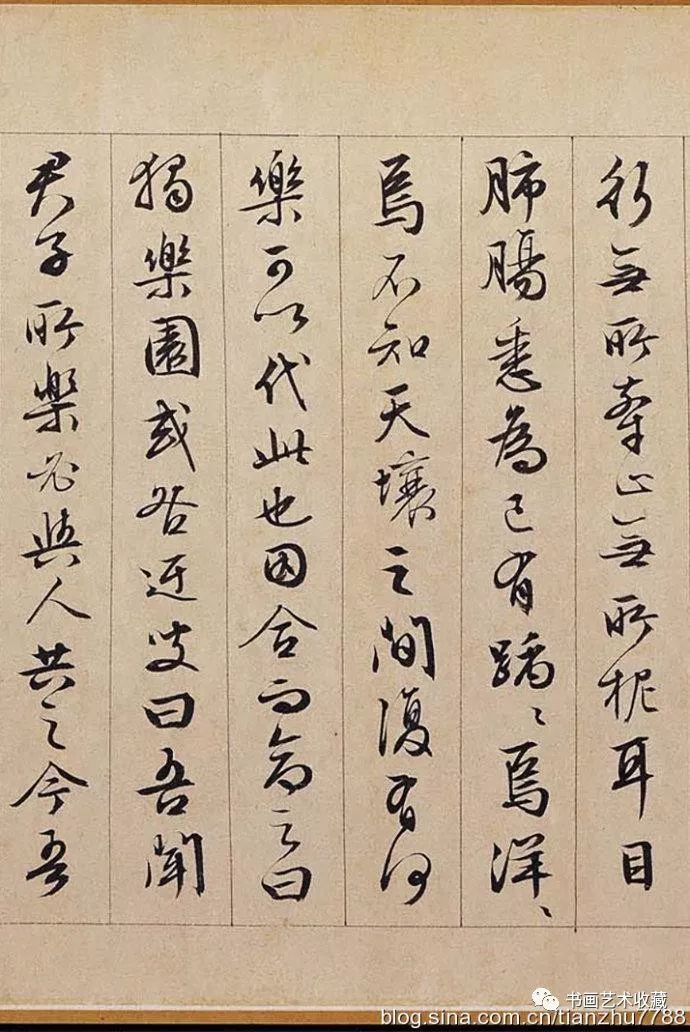 行無所牽止無所柅耳目
肺腸悉為己有踽〻焉洋〻
焉不知天壤之間復有何
樂可以代此也因合而命之曰
獨樂園或咎迂叟曰吾聞
君子所樂必與人共之今吾
书画艺术收藏
blog.sina.com.cn/tianzhu7788